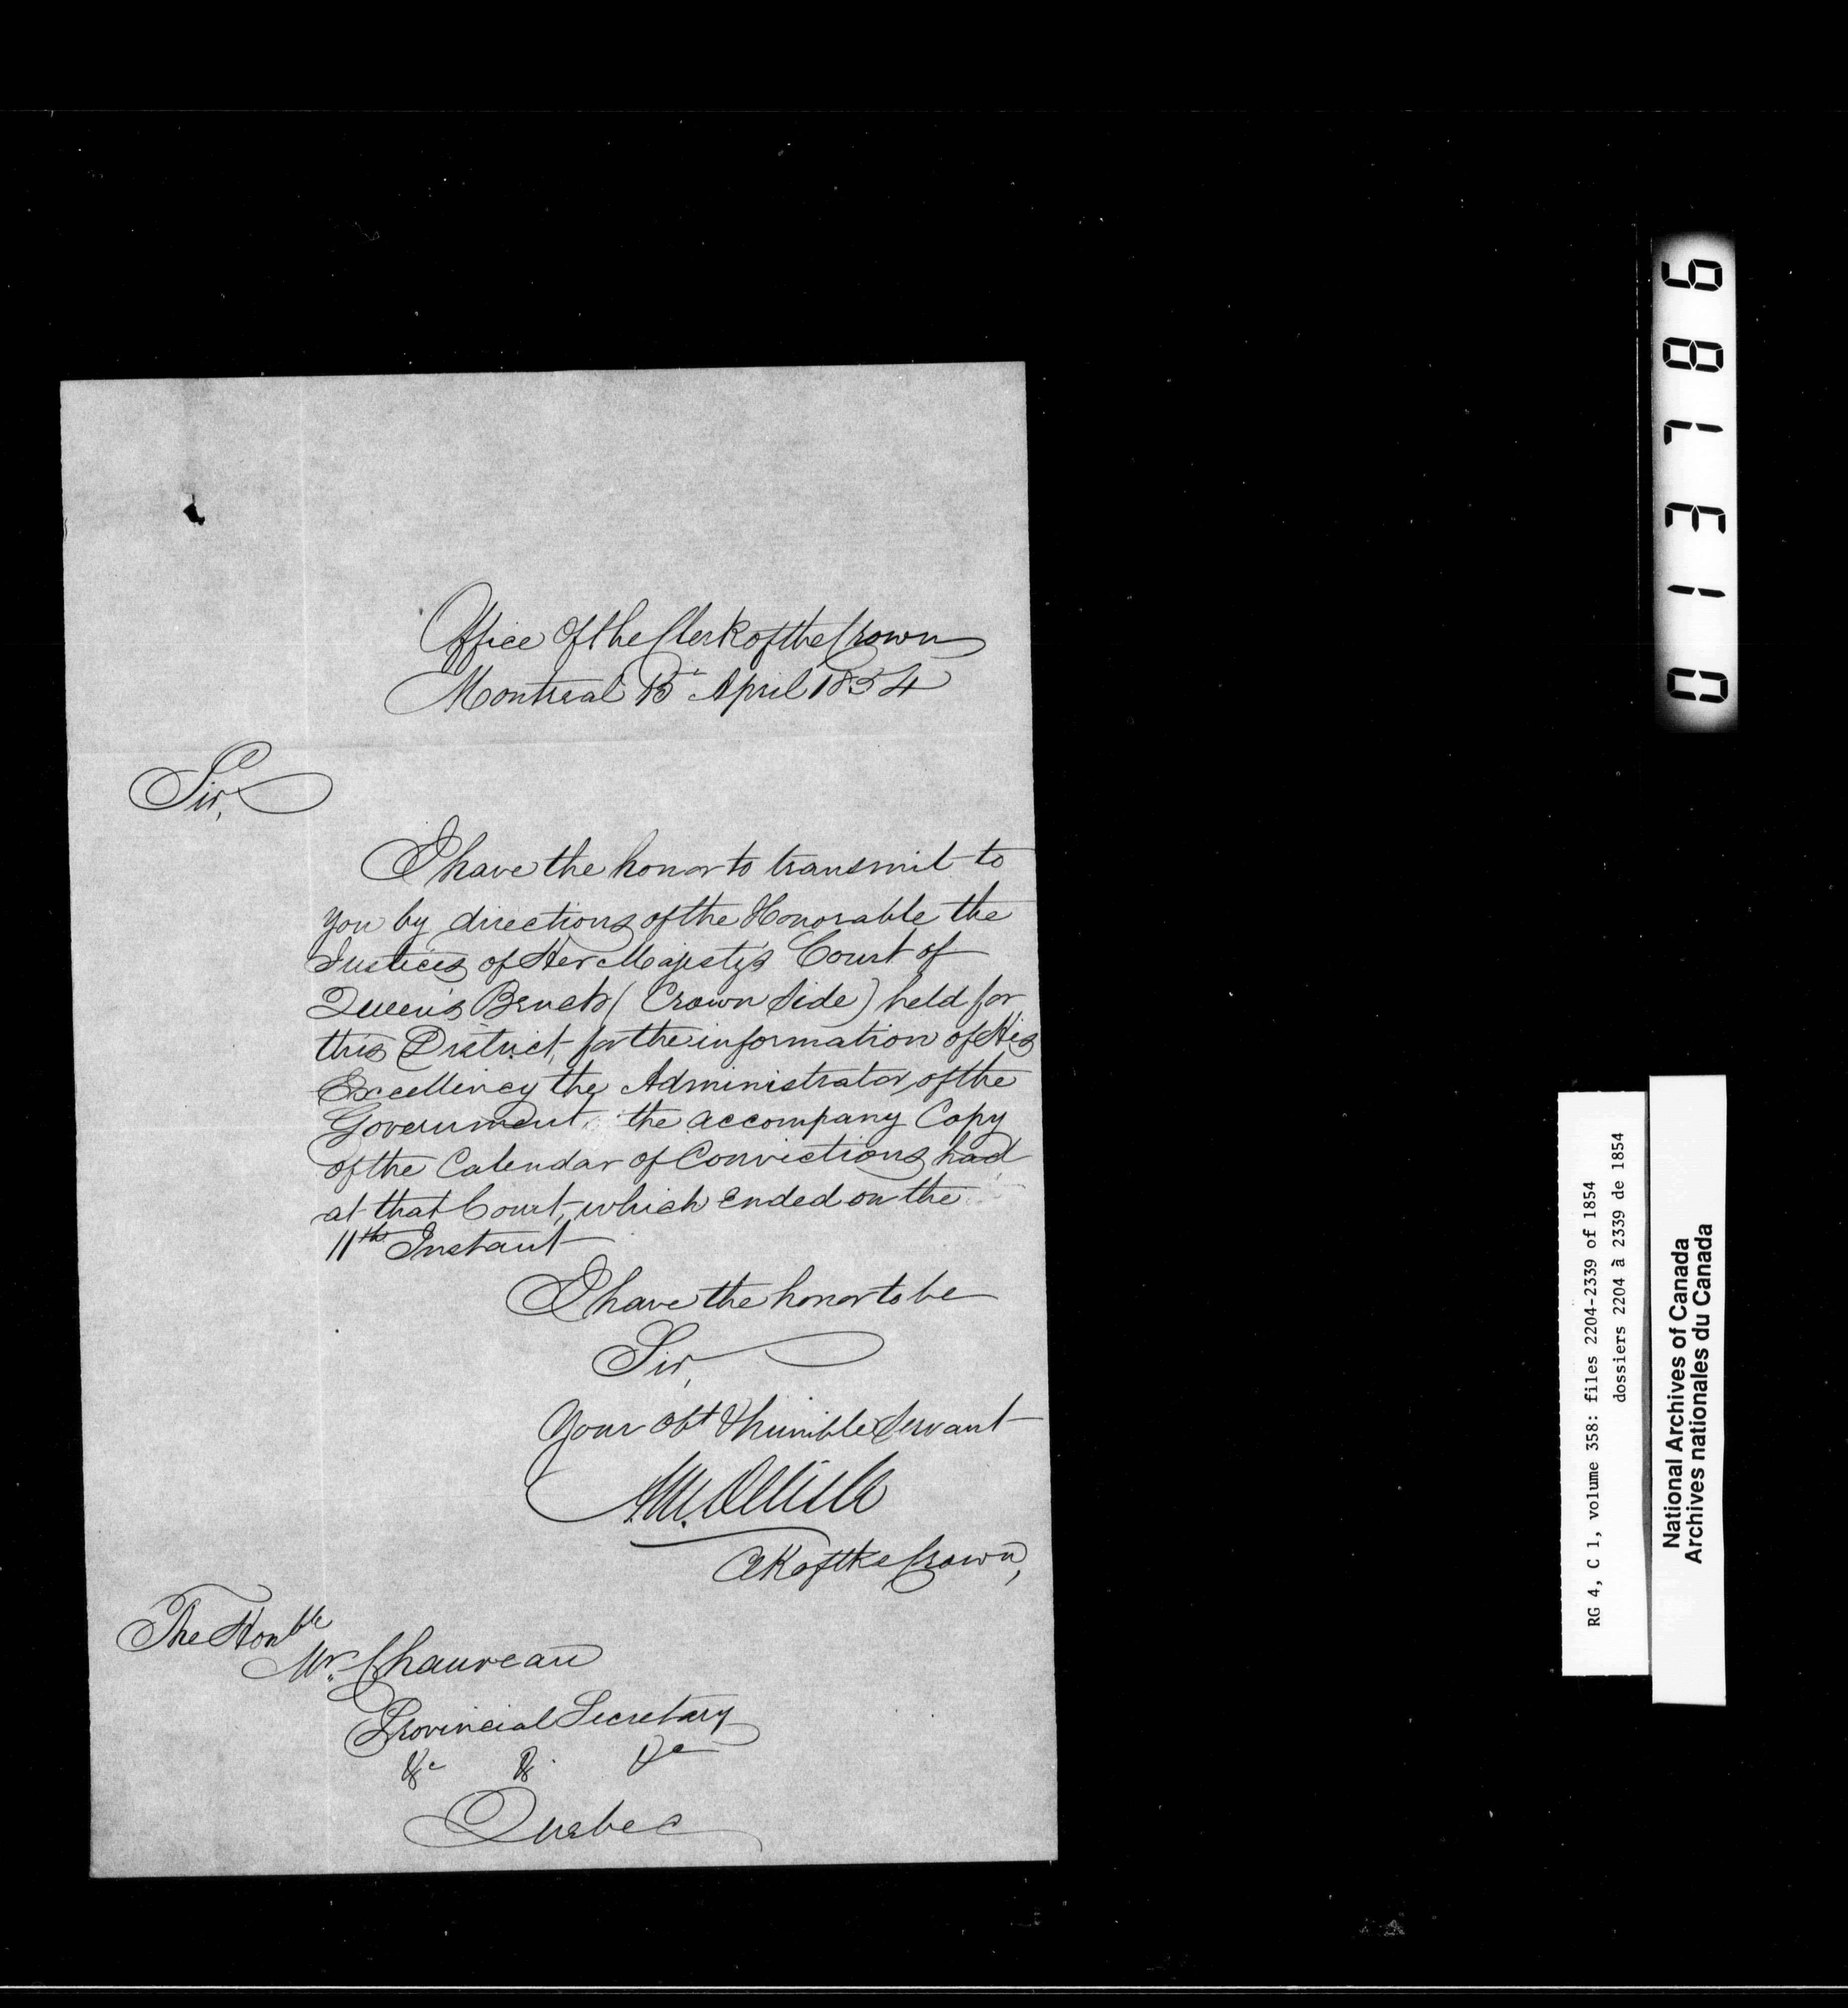 Office of the Clerk of the Crown
Montreal 13 April 1854
Sir,
I have the honor to transmit to
you by directions of the Honorable the
Justices of Her Majesty's Court of
Queen's Bench (Crown Side) held for
this District, for the information of His
Excellency the Administrator of the
Government, the accompany Copy
of the Calendar of Convictions had
at that Court, which ended on the
11th Instant
I have the honor to be
Sir,
Your obt & humble Servant
Delisle
Ck of the Crown,
The Honble
Mr. Chauveau
Provincial Secretary
&c &c &c
Quebec
013786
RG 4, C 1, volume 358: files 2204-2339 of 1854
dossiers 2204 à 2339 de 1854
National Archives of Canada
Archives nationales du Canada